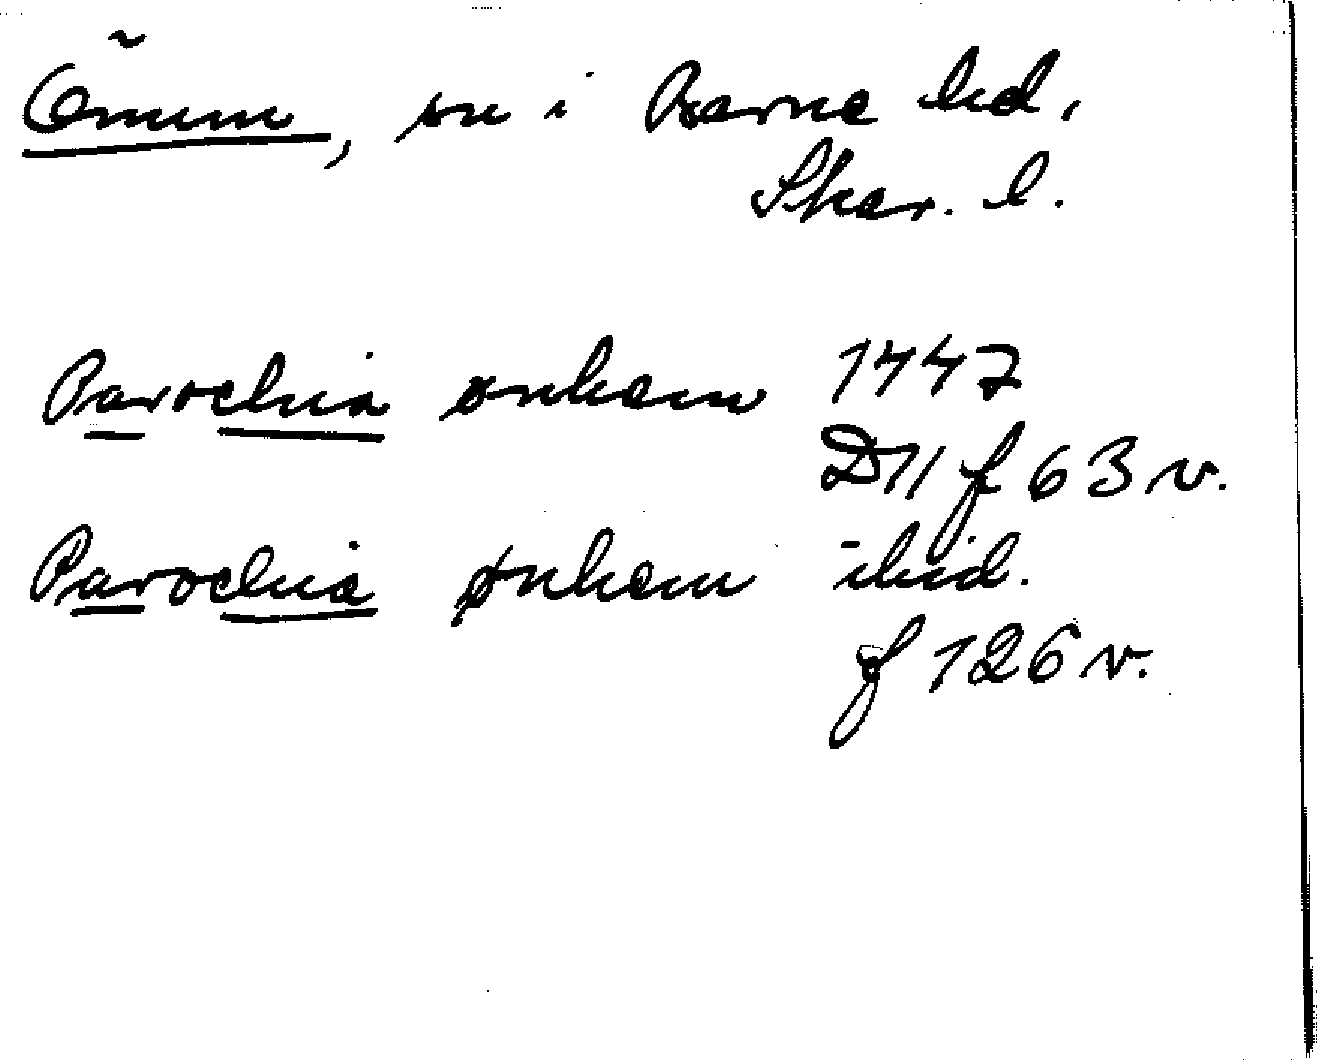 Önum, sn i Barne hd,
Skar. l.
Parochia ønhem 1447
D 11 f 63 v.
Parochia ønhem ibid.
f 126 v.